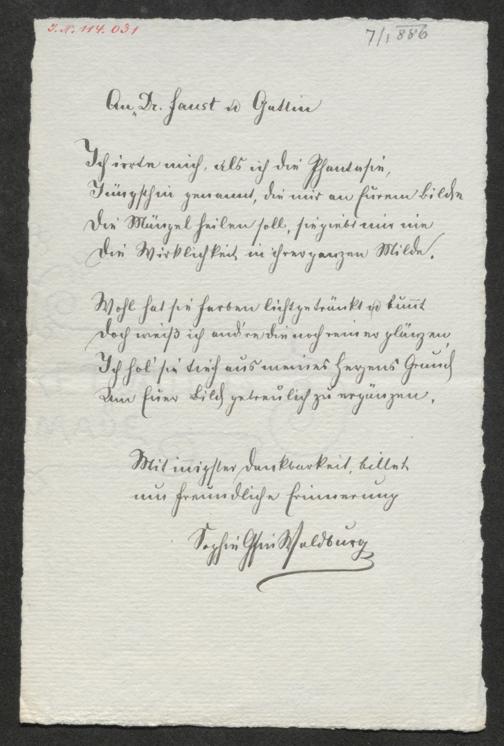 I.N. 114.031
7/1 886
An Dr. Faust u Gattin
Ich irrte mich, als ich die Phantasie,
Jüngsthin genannt, die mir an Eurem Bilde
Die Mängel heilen soll, sie giebt mir nie
Die Wirklichkeit in ihrer ganzen Milde.
Wohl hat sie Farben lichtgetränkt u bunt
Doch weiß ich and're die noch reiner glänzen,
Ich hol' sie tief aus meines Herzens Grund
Um Euer Bild getreulich zu ergänzen.
Mit innigster Dankbarkeit, bittet
um freundliche Erinnerung
Sophie Gfin Waldburg